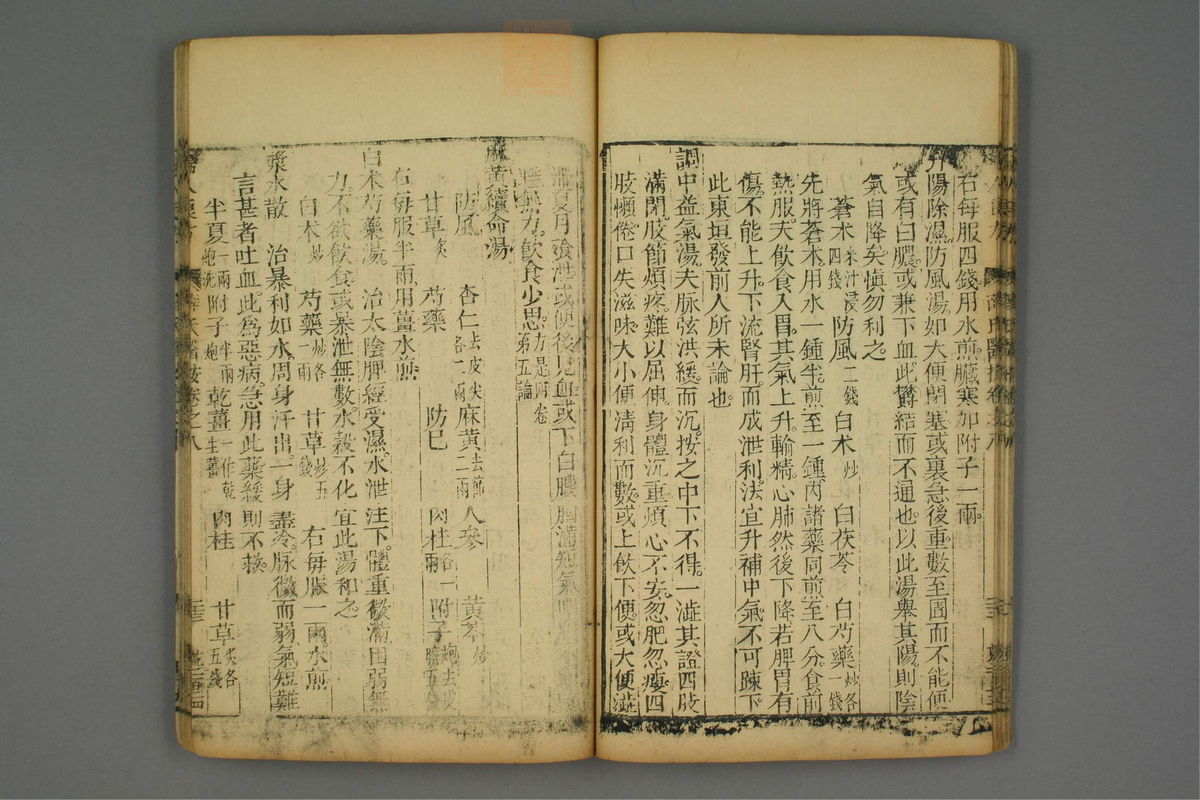 右每服四錢用水煎臟寒加附子一兩
升陽除濕防風湯如大便閉塞或裏急後重數至圊而不能便
或有白膿或兼下血此欝結而不通也以此湯舉其陽則陰
氣自降矣愼勿利之
蒼朮米汁浸四錢 防風二錢 白朮炒 白茯苓 白芍藥炒各一錢
先將蒼朮用水一鍾半煎至一鍾內諸藥同煎至八分食前
熱服夫飲食入胃其氣上升輸精心肺然後下降若脾胃有
傷不能上升下流腎肝而成泄利法宜升補中氣不可踈下
此東垣發前人所未論也
調中益氣湯夫脉弦洪緩而沉按之中下不得一澁其證四肢
滿閉肢節煩疼難以屈伸身體沉重煩心不安忽肥忽瘦四
肢懶倦口失滋味大小便淸利而數或上飲下便或大便澁
夏月飱泄或便後見血或下白膿胸滿短氣
無力飲食少思方是附卷第五論
麻黃續命湯
防風 杏仁去皮尖各一兩 麻黃去節二兩 人參 黃芩炒
甘草炙 芍藥 防巳 肉桂各一兩 附子炮去皮臍五錢
右每服半兩用薑水煎
白朮芍藥湯 治太陰脾經受濕水泄注下體重微滿困弱無
力不欲飲食或暴泄無數水穀不化宜此湯和之
白朮炒 芍藥炒各一兩 甘草炒五錢 右每服一兩水煎
漿水散 治暴利如水周身汗出一身盡冷脉微而弱氣短難
言甚者吐血此爲惡病急用此藥緩則不救
半夏一兩炮洗 附子半兩炮 乾薑一作乾生薑 肉桂 甘草炙各五錢